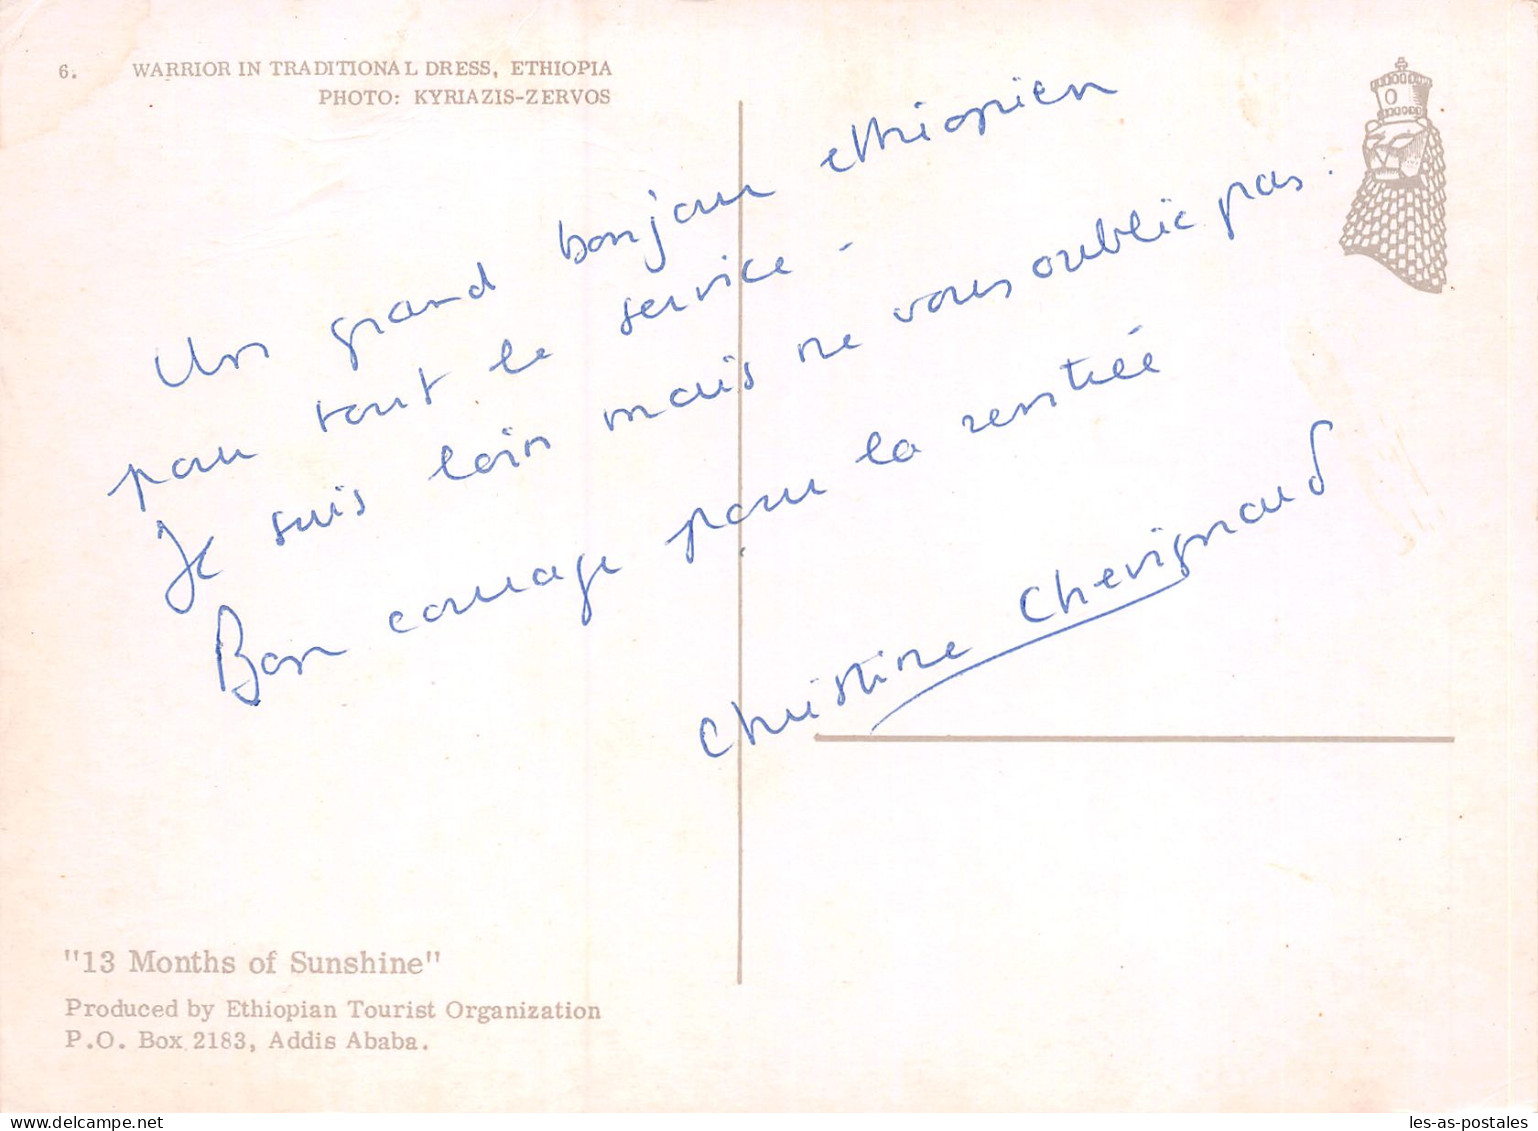 6. WARRIOR IN TRADITIONAL DRESS, ETHIOPIA
PHOTO: KYRIAZIS-ZERVOS
Un grand bonjour ethiopien
pour tout le service -
Je suis loin mais ne vous oublie pas.
Bon courage pour la rentrée
Christine Chevignaud
"13 Months of Sunshine"
Produced by Ethiopian Tourist Organization
P.O. Box 2183, Addis Ababa.
delcampe.net
les-as-postales